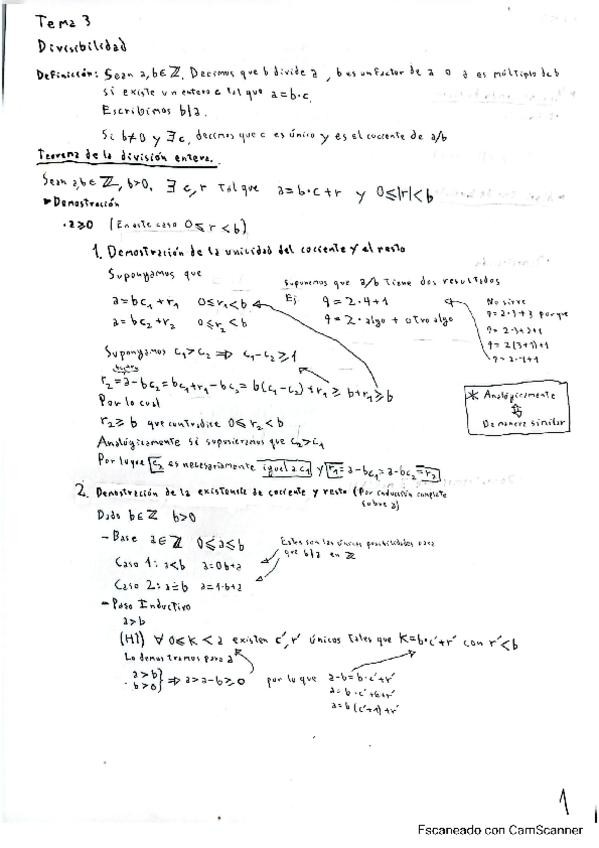 Tema 3
Divisibilidad
Definición: Sean a,b∈ℤ. Decimos que b divide a, b es un factor de a o a es múltiplo de b
si existe un entero c tal que a=b·c.
Escribimos b|a.
Si b≠0 y ∃c, decimos que c es único y es el cociente de a/b
Teorema de la división entera.
Sean a,b∈ℤ, b>0, ∃ c,r tal que a=b·c+r y 0≤|r|<b
▸Demostración
·a≥0 (En este caso 0≤r<b)
1. Demostración de la unicidad del cociente y el resto
Supongamos que
a=bc₁+r₁ 0≤r₁<b
a=bc₂+r₂ 0≤r₂<b
Suponemos que a/b tiene dos resultados
Ej 9=2·4+1
9=2·algo+otro algo
No sirve
9=2·3+3 porque
9=2·3+2+1
9=2(3+1)+1
9=2·4+1
Supongamos c₁>c₂ ⇒ c₁-c₂≥1
r₂=a-bc₂=bc₁+r₁-bc₂=b(c₁-c₂)+r₁≥b+r₁≥b
Por lo cual
r₂≥b que contradice 0≤r₂<b
Analógicamente si supusieramos que c₂>c₁
Por lo que c₂ es necesariamente igual a c₁ y r₁=a-bc₁=a-bc₂=r₂
* Analógicamente
⇕
De manera similar
2. Demostración de la existensie de cociente y resto (Por inducción completa
sobre a)
Dado b∈ℤ b>0
- Base a∈ℤ 0≤a≤b
Caso 1: a<b a=0b+a
Caso 2: a=b a=1·b+a
Estas son las únicas posibilidades para
que b|a en ℤ
- Paso Inductivo
a>b
(HI) ∀ 0≤k<a existen c',r' únicos tales que k=b·c'+r' con r'<b
Lo demostramos para a
a>b
b>0} ⇒ a>a-b≥0 por lo que a-b=b·c'+r'
a=b·c'+b+r'
a=b(c'+1)+r'
1
Escaneado con CamScanner